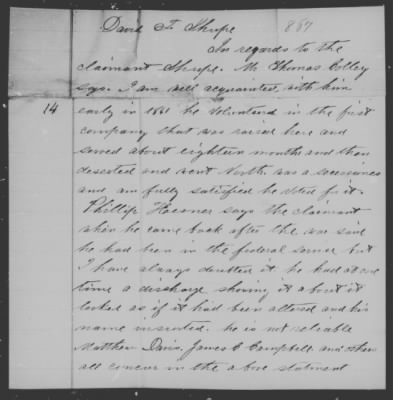 David F. Shupe 867
In regards to the
claimant Shupe. Mr Thomas Colley
says. I am well acquainted with him
14 early in 1861 he Volunteerd in the first
company that was raised here and
served about eighteen months and then
deserted and went North. was a secessionis
and am fully satisfied he voted for it.
Phillip says the claimant
when he came back after the war said
he had been in the federal service but
I have always doubted it he had at one
time a discharge showing it about it
looked as if it had been altered and his
name inserted. he is not reliable
Matthew Davis, James C Campbell and others
all concur in the above statement